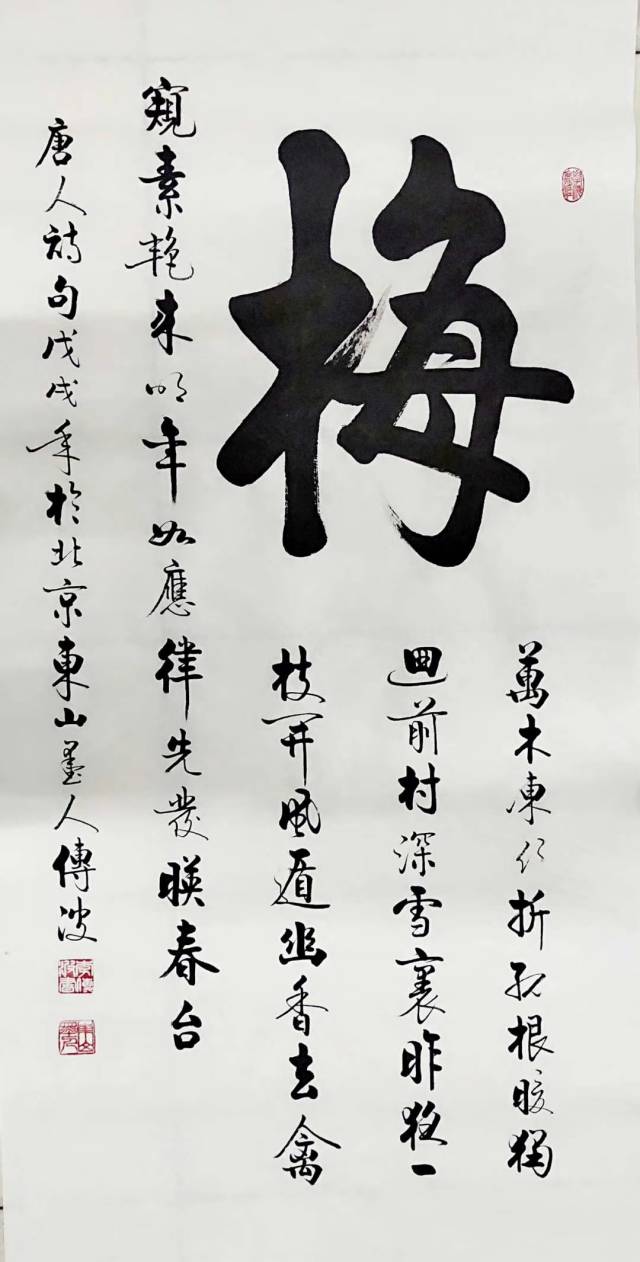 梅
萬木凍折孤根暖獨
迴前村深雪裏昨夜一
枝開風遁幽香去禽
窺素艳来明年如應律先發暎春台
唐人詩句戊戌年於北京東山墨人傳波